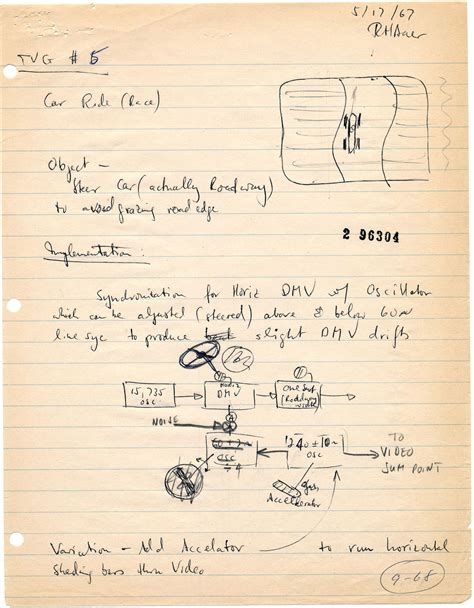 5/17/67
RHBaer
TVG # 5
Car Ride (Race)
Object –
Steer Car (actually Roadway)
to avoid grazing road edge
2 96304
Implementation:
Synchronization for Horiz DMV w/ Oscillator
which can be adjusted (steered) above & below 60~
line sync to produce slight DMV drifts
15,735
OSC
Horiz
DMV
One Shot
(Roadway
width)
NOISE
60 ± 2~
osc
÷ 4
240 ± 10~
osc
TO
VIDEO
SUM POINT
Accellerator
Variation – Add Accelator
to run horizontal
shading bars thru Video
9-68